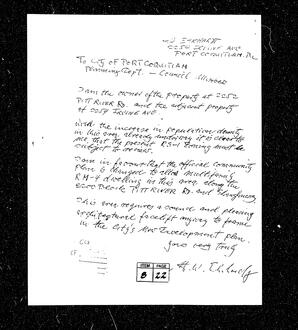 2254 IRVINE AVE
PORT COQUITLAM, BC
To City OF PORT COQUITLAM
Planning Dept. — Council Members
I am the owner of the property at 2252
PITT RIVER RD. and the adjacent property
at 2254 IRVINE AVE.
With the increase in population density
in this area already underway, it is clear to
me, that the present RS-1 zoning must be
subject to change.
I am in favour that the official community
plan is changed to allow multifamily
RM-4 dwelling in this area along the
2200 BLOCK PITT RIVER RD. and
This area requires a and planning
facelift anyway to
in the City's New Development plan.
yours very Truly
ITEM PAGE
B 22